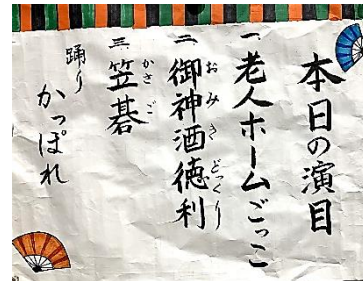 本日の演目
一、老人ホームごっこ
二、御神酒徳利
おみきどっくり
三、笠碁
かさご
踊り
かっぽれ